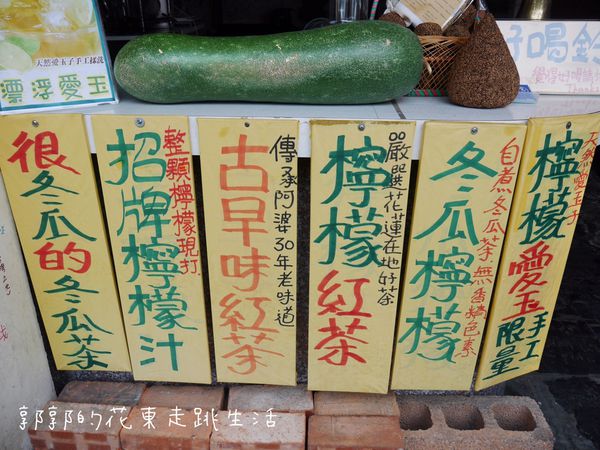 天然愛玉子手工搓洗
漂浮愛玉
好喝鈴
覺得好喝請
很冬瓜的冬瓜茶
招牌檸檬汁
整顆檸檬現打
古早味紅茶
傳承阿婆30年老味道
檸檬紅茶
嚴選花蓮在地好茶
冬瓜檸檬
自煮冬瓜茶.無香精色素
檸檬愛玉
手工限量
天然愛玉子
郭郭的花東走跳生活